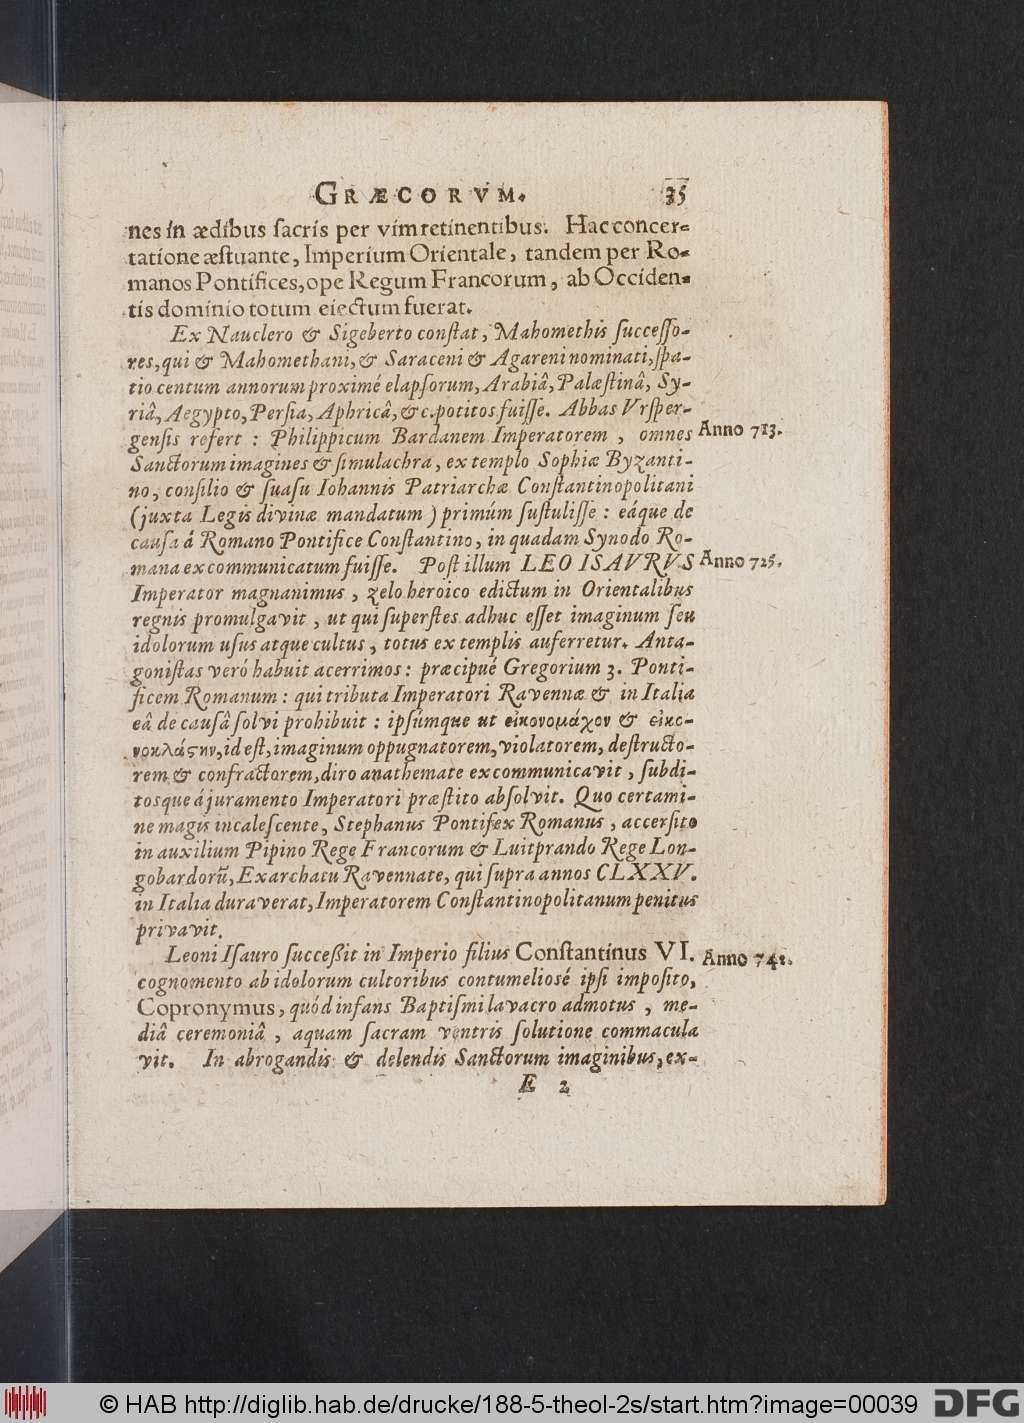 GRÆCORVM. 35
nes in ædibus ſacris per vim retinentibus. Hac concer-
tatione æſtuante, Imperium Orientale, tandem per Ro-
manos Pontifices, ope Regum Francorum, ab Occiden-
tis dominio totum eiectum fuerat.
Ex Nauclero & Sigeberto conſtat, Mahomethis ſucceſſo-
res, qui & Mahomethani, & Saraceni & Agareni nominati, ſpa-
tio centum annorum proximé elapſorum, Arabiâ, Palæſtinâ, Sy-
riâ, Aegypto, Perſia, Aphricâ, &c. potitos fuiſſe. Abbas Vrſper-
genſis refert : Philippicum Bardanem Imperatorem, omnes Anno 713.
Sanctorum imagines & ſimulachra, ex templo Sophiæ Byzanti-
no, conſilio & ſuaſu Iohannis Patriarchæ Conſtantinopolitani
(juxta Legis divinæ mandatum) primúm ſuſtuliſſe : eáque de
cauſa á Romano Pontifice Conſtantino, in quadam Synodo Ro-
mana excommunicatum fuiſſe. Poſt illum LEO ISAVRVS Anno 725.
Imperator magnanimus, zelo heroico edictum in Orientalibus
regnis promulgavit, ut qui ſuperſtes adhuc eſſet imaginum ſeu
idolorum uſus atque cultus, totus ex templis auferretur. Anta-
goniſtas veró habuit acerrimos : præcipué Gregorium 3. Ponti-
ficem Romanum : qui tributa Imperatori Ravennæ & in Italia
eâ de cauſâ ſolvi prohibuit : ipſúmque ut εἰκονομάχον & εἰκο-
νοκλάϛην, id eſt, imaginum oppugnatorem, violatorem, deſtructo-
rem & confractorem, diro anathemate excommunicavit, ſubdi-
tosque á juramento Imperatori præſtito abſolvit. Quo certami-
ne magis incaleſcente, Stephanus Pontifex Romanus, accerſito
in auxilium Pipino Rege Francorum & Luitprando Rege Lon-
gobardorũ, Exarchatu Ravennate, qui ſupra annos CLXXV.
in Italia duraverat, Imperatorem Conſtantinopolitanum penitus
privavit.
Leoni Iſauro ſucceßit in Imperio filius Conſtantinus VI. Anno 741.
cognomento ab idolorum cultoribus contumelioſé ipſi impoſito,
Copronymus, quód infans Baptiſmi lavacro admotus, me-
diâ ceremoniâ, aquam ſacram ventris ſolutione commacula
vit. In abrogandis & delendis Sanctorum imaginibus, ex-
E 2
© HAB http://diglib.hab.de/drucke/188-5-theol-2s/start.htm?image=00039
DFG